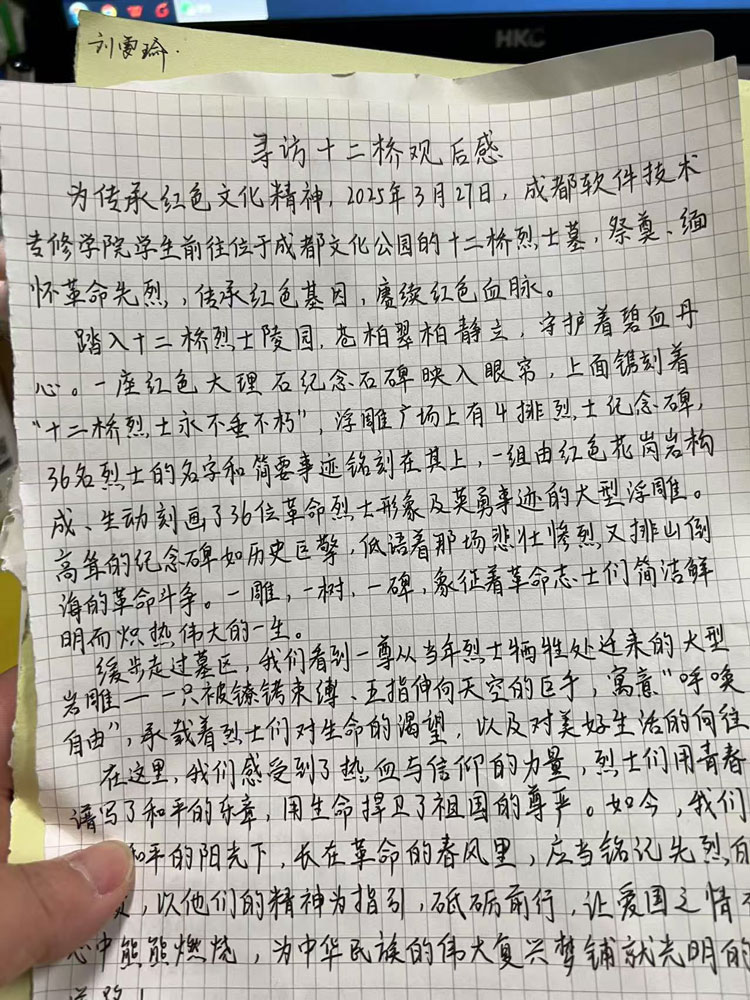 HKC
刘雯瑜.
寻访十二桥观后感
为传承红色文化精神,2025年3月27日,成都软件技术
专修学院学生前往位于成都文化公园的十二桥烈士墓,祭奠、缅
怀革命先烈,传承红色基因,赓续红色血脉。
踏入十二桥烈士陵园,苍柏翠柏静立,守护着碧血丹
心。一座红色大理石纪念石碑映入眼帘,上面镌刻着
“十二桥烈士永不垂不朽”,浮雕广场上有4排烈士纪念碑,
36名烈士的名字和简要事迹铭刻在其上,一组由红色花岗岩构
成、生动刻画了36位革命烈士形象及英勇事迹的大型浮雕。
高耸的纪念碑如历史巨擎,低语着那场悲壮惨烈又排山倒
海的革命斗争。一雕,一树,一碑,象征着革命志士们简洁鲜
明而炽热伟大的一生。
缓步走过墓区,我们看到一尊从当年烈士牺牲处迁来的大型
岩雕——一只被镣铐束缚、五指伸向天空的巨手,寓意“呼唤
自由”,承载着烈士们对生命的渴望,以及对美好生活的向往
在这里,我们感受到了热血与信仰的力量,烈士们用青春
谱写了和平的乐章,用生命捍卫了祖国的尊严。如今,我们
和平的阳光下,长在革命的春风里,应当铭记先烈的
,以他们的精神为指引,砥砺前行,让爱国之情
心中熊熊燃烧,为中华民族的伟大复兴梦铺就光明的